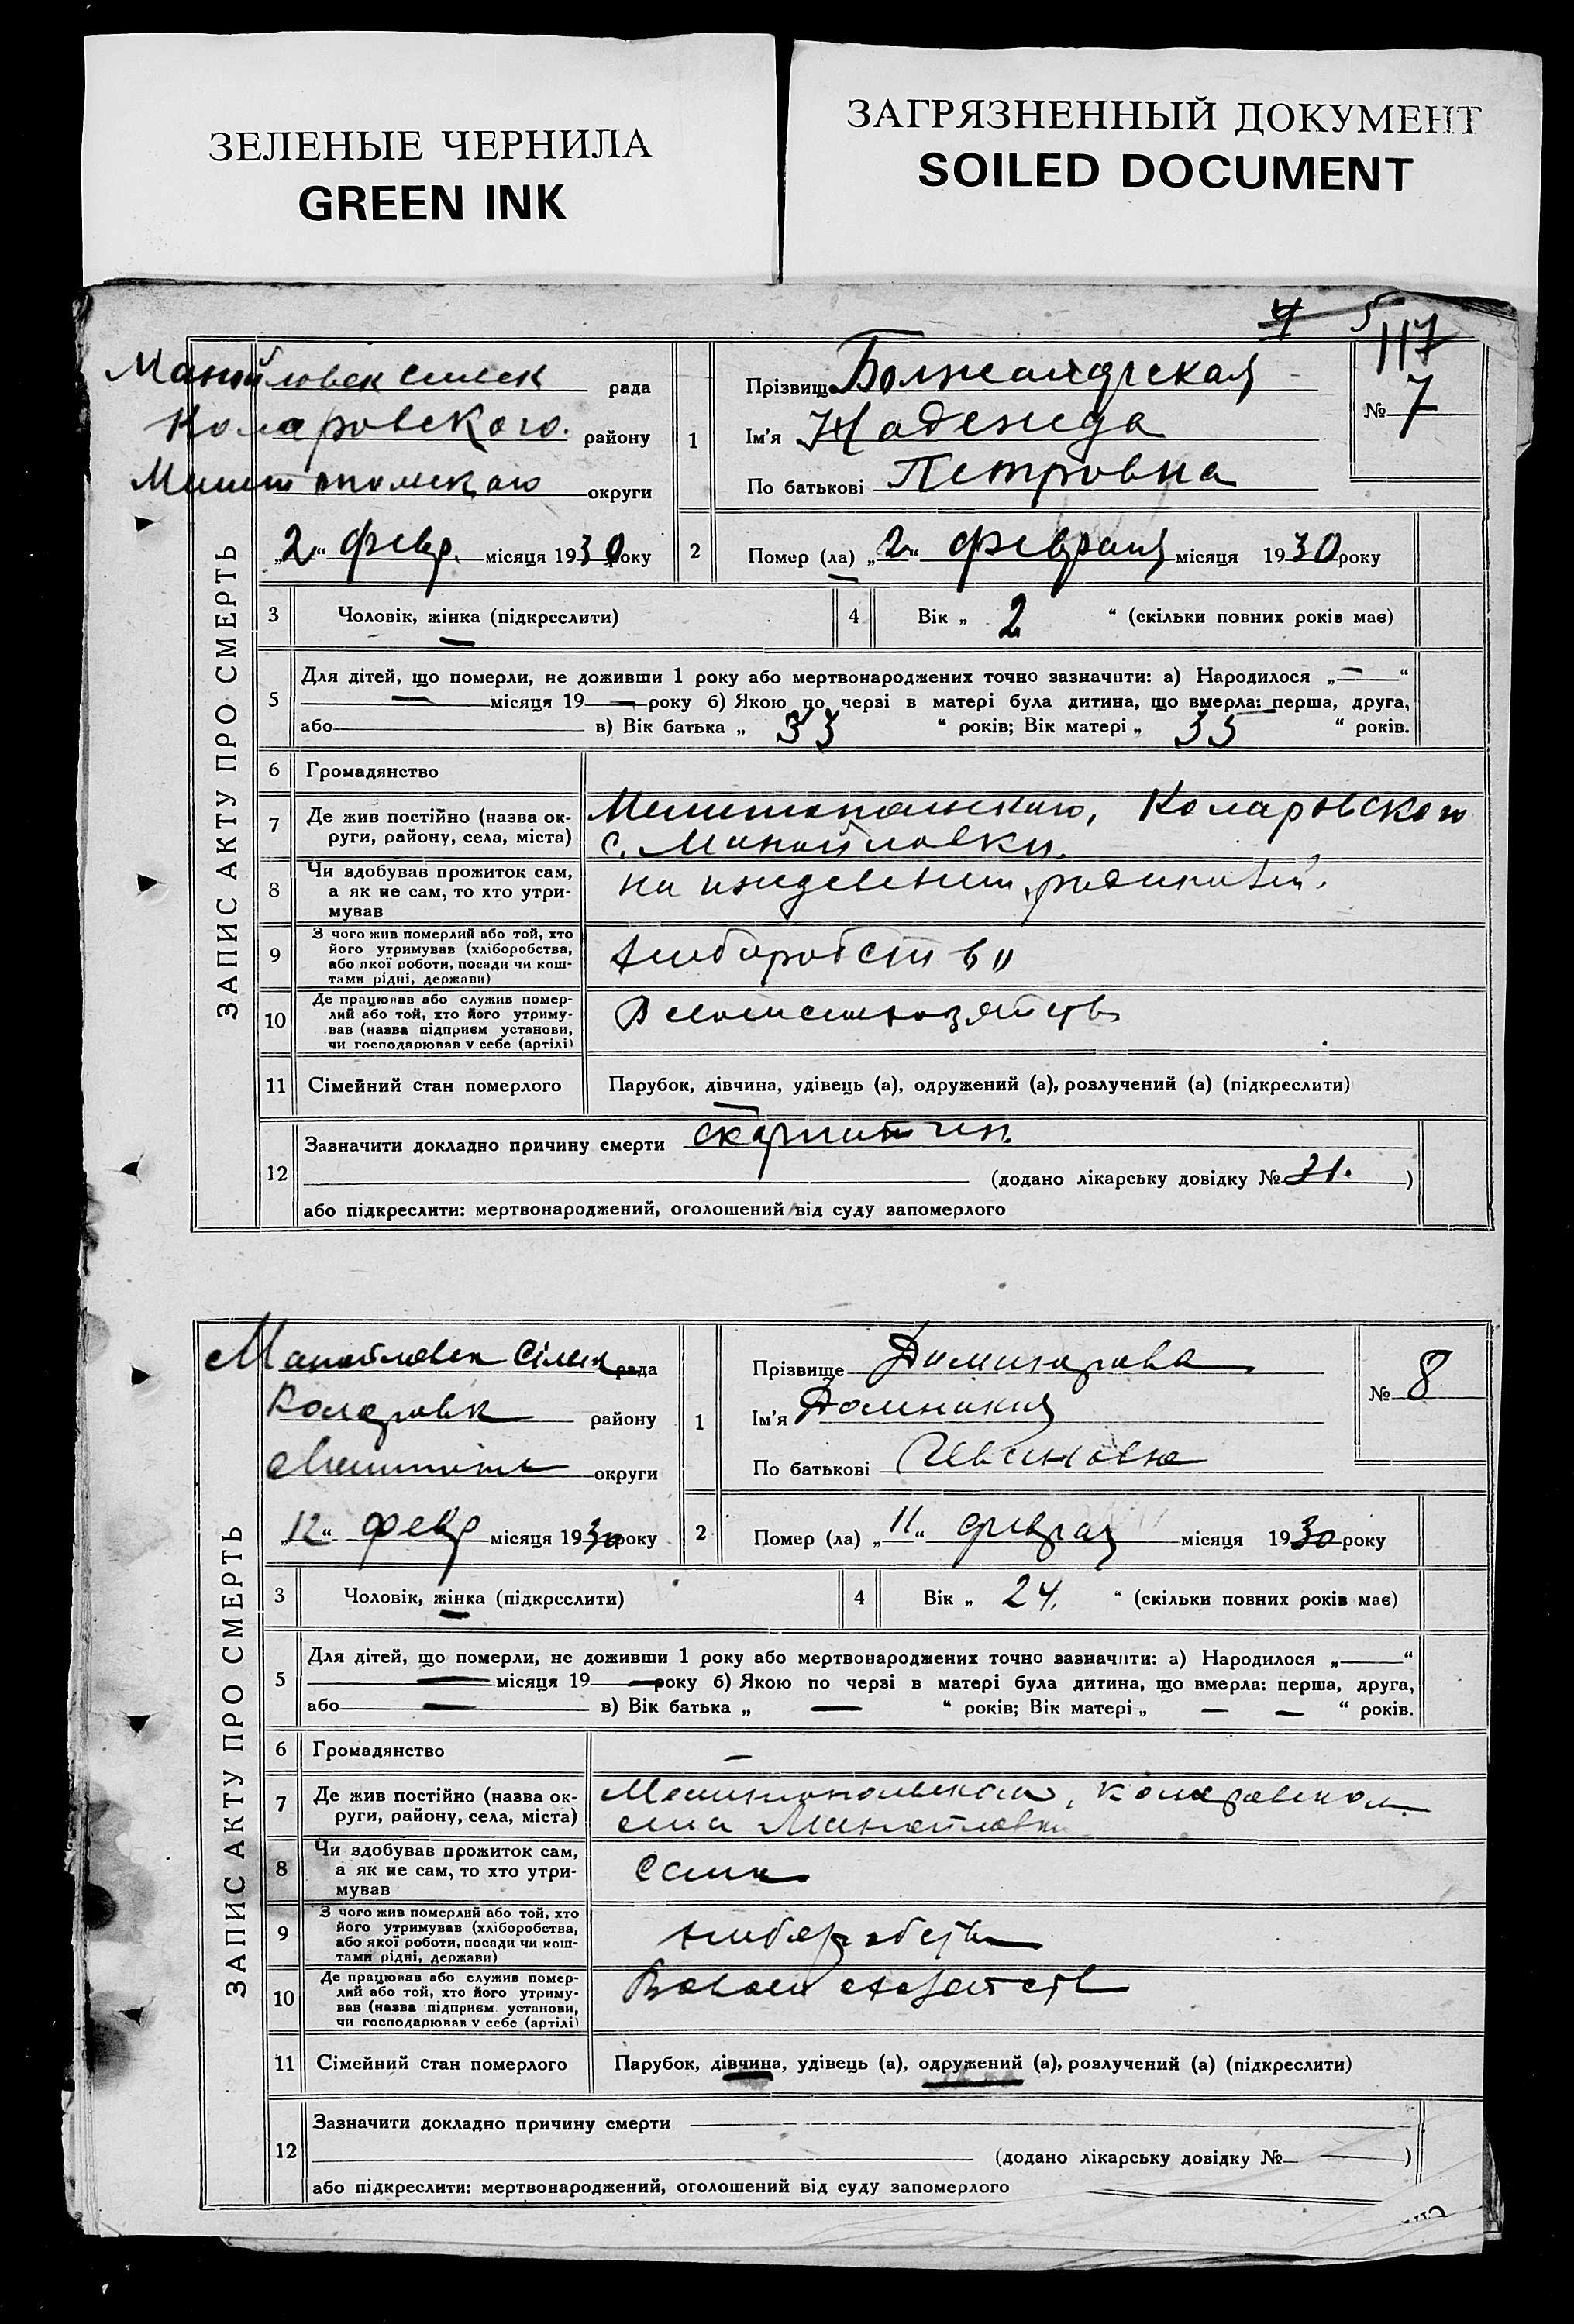 ЗЕЛЕНЫЕ ЧЕРНИЛА
GREEN INK
ЗАГРЯЗНЕННЫЙ ДОКУМЕНТ
SOILED DOCUMENT
4 5
117
ЗАПИС АКТУ ПРО СМЕРТЬ
рада
Коларовского району
округи
„2“ февр. місяця 1930 року
1
Прізвище
Ім'я Надежда
По батькові Петровна
№ 7
2 Помер (ла) „2“ февраля місяця 1930 року
3 Чоловік, жінка (підкреслити)
4 Вік „ 2 “ (скільки повних років має)
5 Для дітей, що померли, не доживши 1 року або мертвонароджених точно зазначити: а) Народилося „—“
— місяця 19 — року б) Якою по черзі в матері була дитина, що вмерла: перша, друга,
або в) Вік батька „ 33 “ років; Вік матері „ 35 “ років.
6 Громадянство
7 Де жив постійно (назва ок-
руги, району, села, міста)
Мелитопольского, Коларовского
с. Манойловки.
8 Чи здобував прожиток сам,
а як не сам, то хто утри-
мував
на иждевении родителей.
9 З чого жив померлий або той, хто
його утримував (хліборобства,
або якої роботи, посади чи кош-
тами рідні, держави)
10 Де працював або служив помер-
лий або той, хто його утриму-
вав (назва підприєм установи,
чи господарював у себе (артілі)
11 Сімейний стан померлого
Парубок, дівчина, удівець (а), одружений (а), розлучений (а) (підкреслити)
12 Зазначити докладно причину смерти скарлатин.
(додано лікарську довідку № 21. )
або підкреслити: мертвонароджений, оголошений від суду запомерлого
ЗАПИС АКТУ ПРО СМЕРТЬ
рада
району
округи
„12“ февр місяця 1930 року
1
Прізвище
Ім'я Домникия
По батькові Ивановна
№ 8
2 Помер (ла) „11“ февраля місяця 1930 року
3 Чоловік, жінка (підкреслити)
4 Вік „ 24. “ (скільки повних років має)
5 Для дітей, що померли, не доживши 1 року або мертвонароджених точно зазначити: а) Народилося „—“
— місяця 19 — року б) Якою по черзі в матері була дитина, що вмерла: перша, друга,
або — в) Вік батька „ — “ років; Вік матері „ — — “ років.
6 Громадянство —
7 Де жив постійно (назва ок-
руги, району, села, міста)
села Манойловки
8 Чи здобував прожиток сам,
а як не сам, то хто утри-
мував
сама
9 З чого жив померлий або той, хто
його утримував (хліборобства,
або якої роботи, посади чи кош-
тами рідні, держави)
10 Де працював або служив помер-
лий або той, хто його утриму-
вав (назва підприєм. установи,
чи господарював у себе (артілі)
11 Сімейний стан померлого
Парубок, дівчина, удівець (а), одружений (а), розлучений (а) (підкреслити)
12 Зазначити докладно причину смерти
(додано лікарську довідку № )
або підкреслити: мертвонароджений, оголошений від суду запомерлого